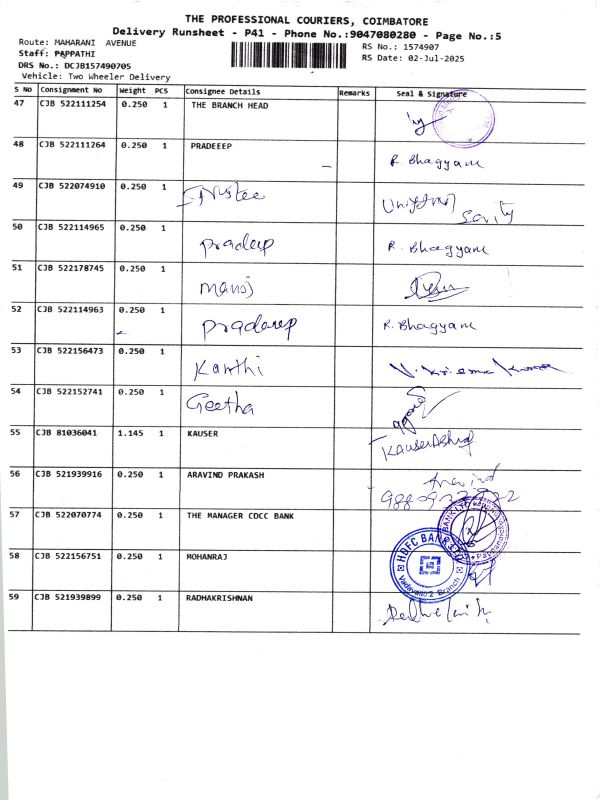 THE PROFESSIONAL COURIERS, COIMBATORE
Delivery Runsheet - P41 - Phone No.:9047080280 - Page No.:5
Route: MAHARANI AVENUE
RS No.: 1574907
Staff: PAPPATHI
RS Date: 02-Jul-2025
DRS No.: DCJB157490705
Vehicle: Two Wheeler Delivery
S No Consignment No Weight PCS Consignee Details Remarks Seal & Signature
47 CJB 522111254 0.250 1 THE BRANCH HEAD
48 CJB 522111264 0.250 1 PRADEEEP R. Bhagyam
49 CJB 522074910 0.250 1 Trustee
50 CJB 522114965 0.250 1 Pradeep R. Bhagyam
51 CJB 522178745 0.250 1 Manoj
52 CJB 522114963 0.250 1 Pradeep R. Bhagyam
53 CJB 522156473 0.250 1 Kanthi V. Krishna Kumar
54 CJB 522152741 0.250 1 Geetha
55 CJB 81036041 1.145 1 KAUSER Kauser Ashraf
56 CJB 521939916 0.250 1 ARAVIND PRAKASH Aravind
57 CJB 522070774 0.250 1 THE MANAGER CDCC BANK
58 CJB 522156751 0.250 1 MOHANRAJ HDFC BANK
Vadavalli 2 Branch
59 CJB 521939899 0.250 1 RADHAKRISHNAN